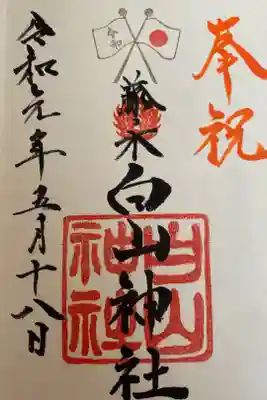 奉祝
令和
藤木
白山神社
白山神社
令和元年五月十八日